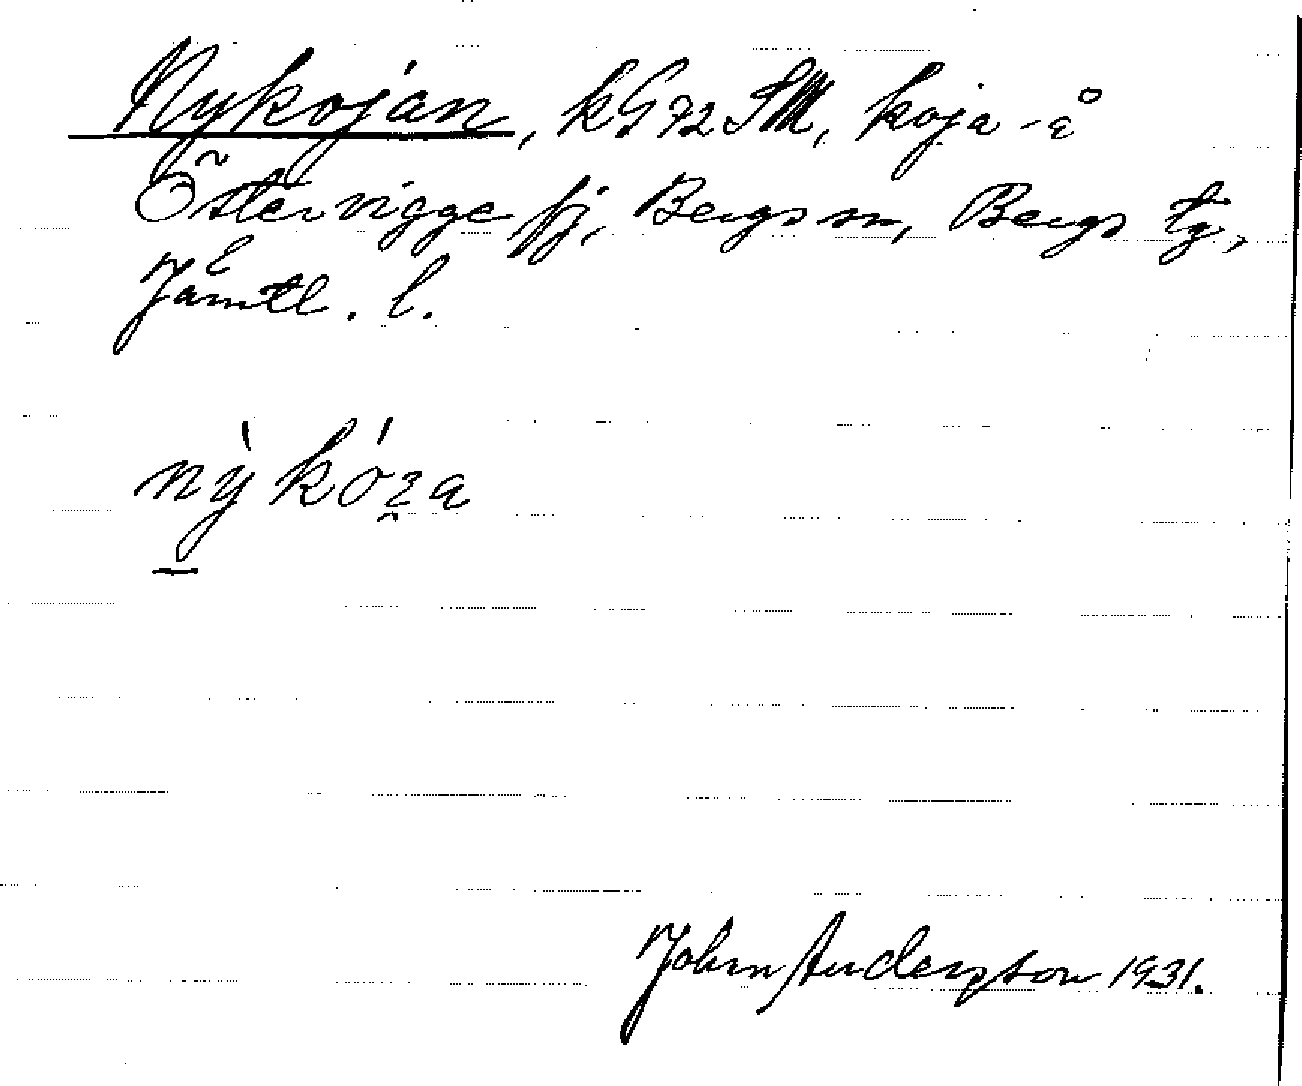 Nykojan, kG72SM, koja -å
Östervigge fj, Bergs sn, Bergs tg,
Jämtl. l.
ny̆̀ kóʒa
John Anderzson 1931.